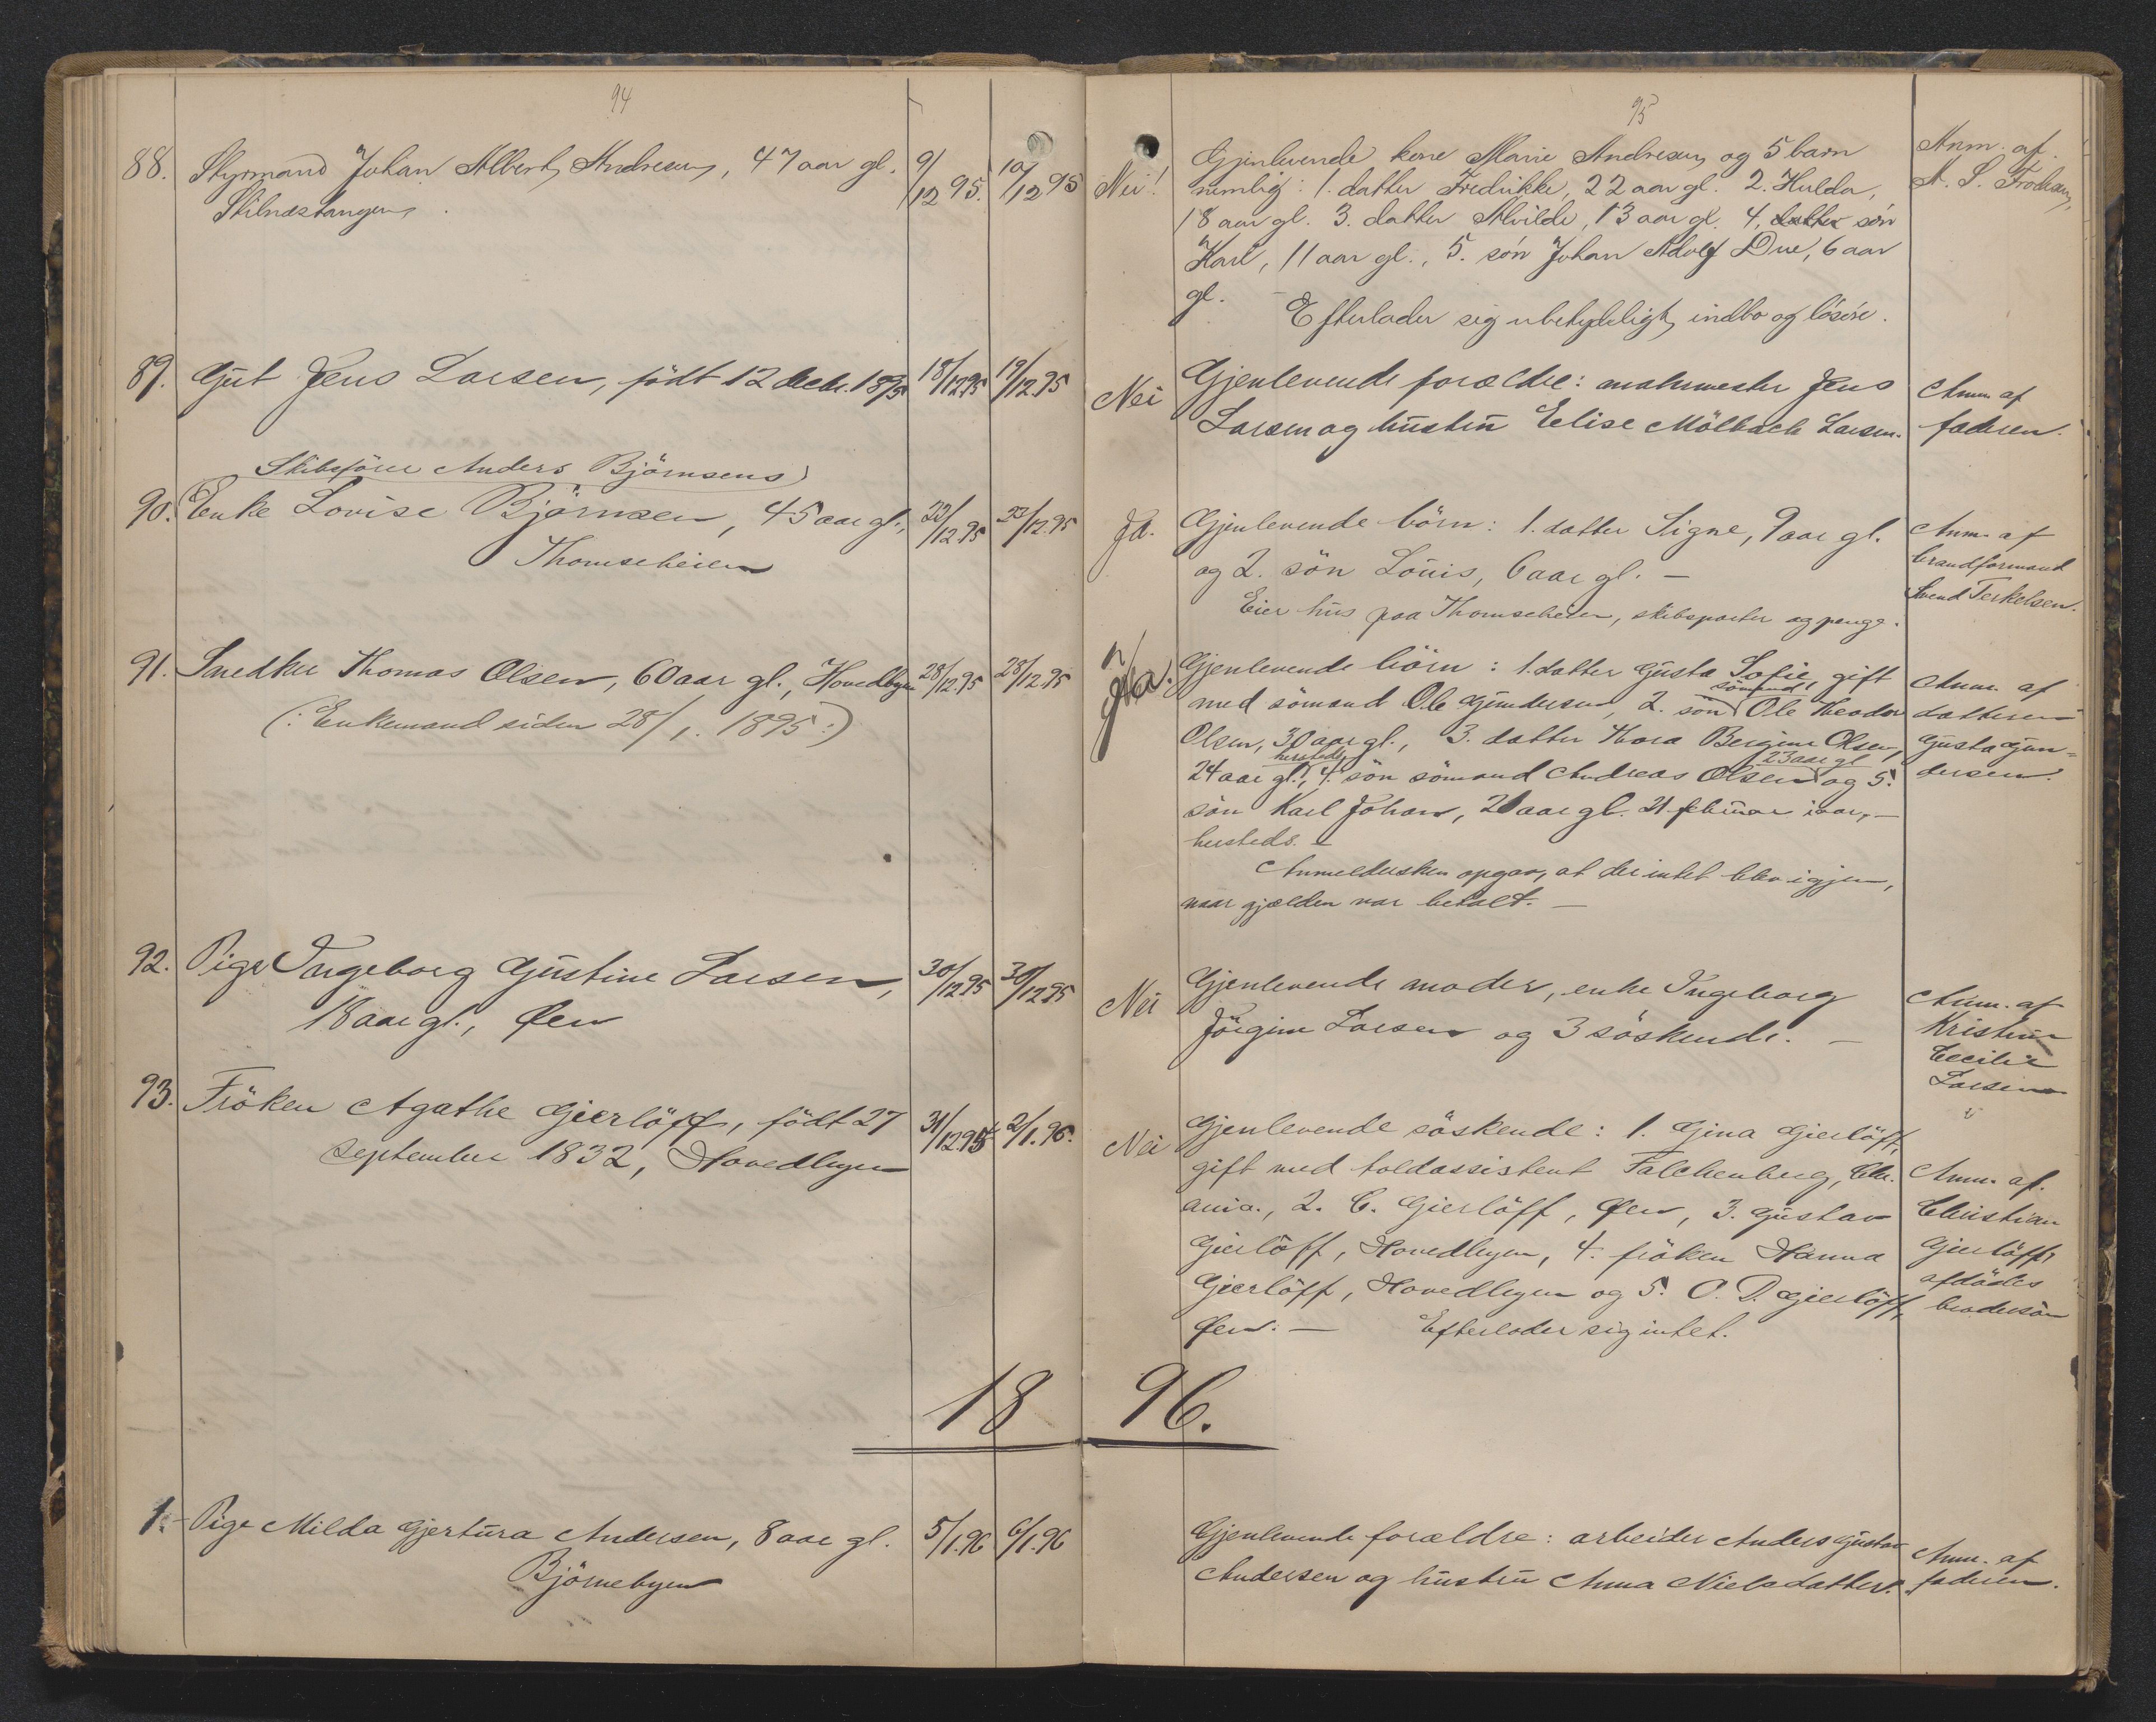 94
88. Styrmand Johan Albert Andresen, 47 aar gl. 9/12 95. 10/12 95
Skilnæstangen.
89. Gut Jens Larsen, födt 12 decbr. 1895 18/12.95 19/12.95
Skibsförer Anders Björnsens
90. Enke Lovise Björnsen, 45 aar gl., 22/12.95 23/12.95
Thomseheien
91. Snedker Thomas Olsen, 60 aar gl., Hovedbyen 28/12.95 28/12.95
(: Enkemand siden 28/1. 1895 :)
92. Pige Ingeborg Gustine Larsen, 30/12.95 30/12.95
18 aar gl., Öen
93. Fröken Agathe Gierlöff, födt 27 31/12.95 2/1.96.
september 1832, Hovedbyen
18
1. Pige Milda Gjertura Andersen, 8 aar gl. 5/1.96 6/1.96
Björnebyen
95
Nei! Gjenlevende kone Marie Andresen og 5 barn
nemlig: 1. datter Fredrikke, 22 aar gl. 2. Hulda,
18 aar gl. 3. datter Alvilde, 13 aar gl. 4, datter sön
Karl, 11 aar gl., 5. sön Johan Adolf Due, 6 aar
gl. –
Efterlader sig ubetydeligt indbo og lösöre.
Anm. af
A. S. Frodesen
Nei Gjenlevende forældre: malermester Jens
Larsen og hustru Elise Mölbach Larsen.
Anm. af
faderen.
Ja. Gjenlevende börn: 1. datter Signe, 9 aar gl.
og 2. sön Louis, 6 aar gl. –
Eier hus paa Thomseheien, skibsparter og penge.
Anm. af
brandformand
Svend Terkelsen.
Ja. Gjenlevende börn: 1. datter Gusta Sofie, gift
sömand
med sömand Ole Gundersen, 2. sön Ole Theodor
Olsen, 30 aar gl., 3. datter Thora Bergine Olsen,
hersteds 23 aar gl
24 aar gl., 4. sön sömand Andreas Olsen og 5.
sön Karl Johan, 20 aar gl. 21. februar iaar, –
hersteds. –
Anmeldersken opgav, at der intet blev igjen,
naar gjælden var betalt. –
Anm. af
datteren
Gusta Gun=
dersen.
Nei Gjenlevende moder, enke Ingeborg
Jörgine Larsen og 3 söskende. –
Anm. af
Kristine
Cecilie
Larsen
Nei Gjenlevende söskende: 1. Gina Gierlöff,
gift med toldassistent Falchenberg, Chr.
ania., 2. C. Gierlöff, Öen, 3. Gustav
Gierlöff, Hovedbyen, 4. fröken Hanna
Gierlöff, Hovedbyen og 5. O. D. Gierlöff,
Öen. – Efterlader sig intet.
Anm. af.
Christian
Gierlöff,
afdödes
brodersön
96.
Gjenlevende forældre: arbeider Anders Gustav
Andersen og hustru Anna Nielsdatter.
Anm. af
faderen.